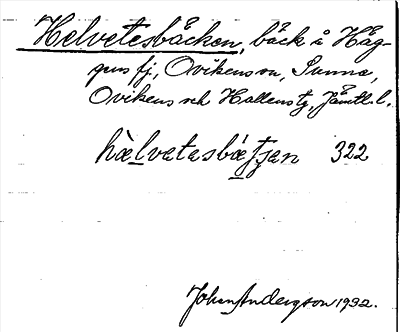 Helvetesbäcken, bäck å Håg-
gus fj., Ovikens sn, Sunne,
Ovikens och Hallens tg, Jämtl. l.
hæ̀lvetasbǽtjen 322
Johan Anderson 1932.